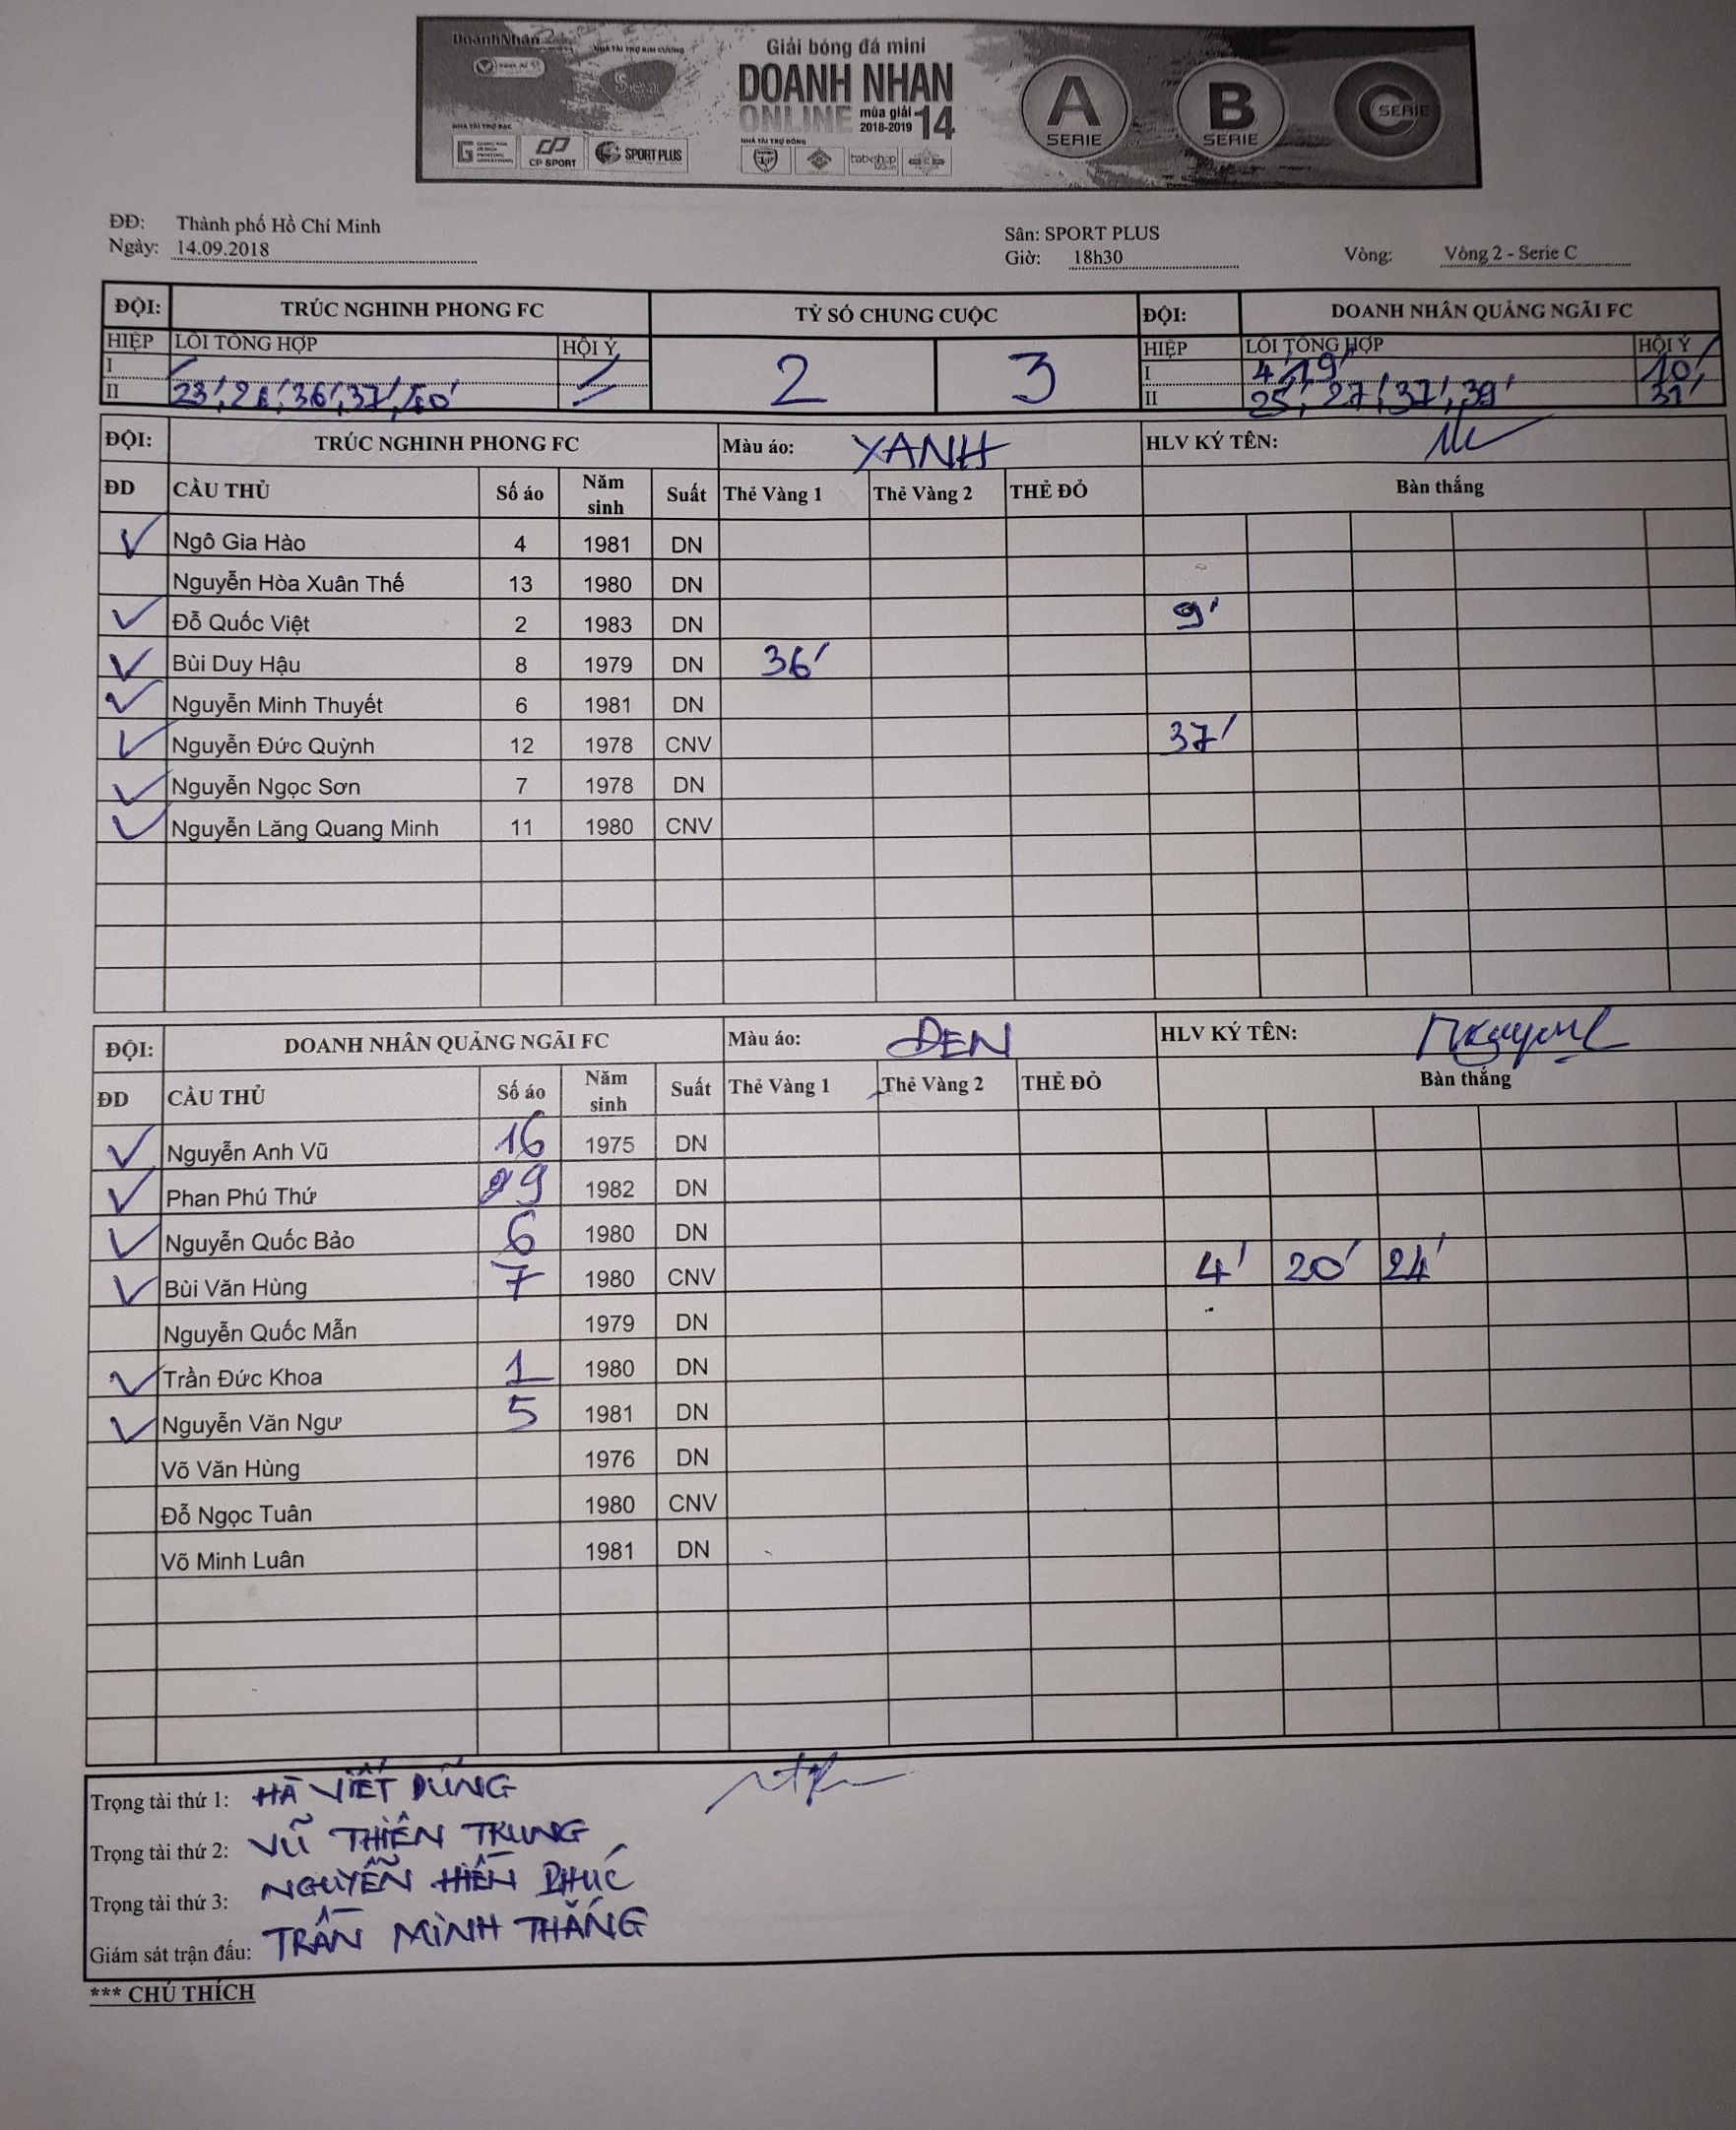 DoanhNhân
NHÀ TÀI TRỢ KIM CƯƠNG
Giải bóng đá mini
DOANH NHAN
ONLINE mùa giải 2018-2019 14
A SERIE
B SERIE
C SERIE
NHÀ TÀI TRỢ BẠC
CP SPORT
SPORT PLUS
NHÀ TÀI TRỢ ĐỒNG
ĐĐ: Thành phố Hồ Chí Minh
Sân: SPORT PLUS
Ngày: 14.09.2018
Giờ: 18h30
Vòng: Vòng 2 - Serie C
ĐỘI: TRÚC NGHINH PHONG FC TỶ SỐ CHUNG CUỘC ĐỘI: DOANH NHÂN QUẢNG NGÃI FC
HIỆP LỖI TỔNG HỢP HỘI Ý 2 3 HIỆP LỖI TỔNG HỢP HỘI Ý
I I 4' 19' 10'
II 23' 36' 37' II 25' 27' 37' 39'
ĐỘI: TRÚC NGHINH PHONG FC Màu áo: XANH HLV KÝ TÊN:
ĐD CẦU THỦ Số áo Năm sinh Suất Thẻ Vàng 1 Thẻ Vàng 2 THẺ ĐỎ Bàn thắng
Ngô Gia Hào 4 1981 DN
Nguyễn Hòa Xuân Thế 13 1980 DN
Đỗ Quốc Việt 2 1983 DN 9'
Bùi Duy Hậu 8 1979 DN 36'
Nguyễn Minh Thuyết 6 1981 DN
Nguyễn Đức Quỳnh 12 1978 CNV 37'
Nguyễn Ngọc Sơn 7 1978 DN
Nguyễn Lăng Quang Minh 11 1980 CNV
ĐỘI: DOANH NHÂN QUẢNG NGÃI FC Màu áo: ĐEN HLV KÝ TÊN:
ĐD CẦU THỦ Số áo Năm sinh Suất Thẻ Vàng 1 Thẻ Vàng 2 THẺ ĐỎ Bàn thắng
Nguyễn Anh Vũ 16 1975 DN
Phan Phú Thứ 1982 DN
Nguyễn Quốc Bảo 6 1980 DN
Bùi Văn Hùng 7 1980 CNV 4' 20' 24'
Nguyễn Quốc Mẫn 1979 DN
Trần Đức Khoa 1 1980 DN
Nguyễn Văn Ngư 5 1981 DN
Võ Văn Hùng 1976 DN
Đỗ Ngọc Tuân 1980 CNV
Võ Minh Luân 1981 DN
Trọng tài thứ 1: HÀ VIẾT DŨNG
Trọng tài thứ 2: VŨ THIÊN TRUNG
Trọng tài thứ 3: NGUYỄN HIỀN PHÚC
Giám sát trận đấu: TRẦN MINH THẮNG
*** CHÚ THÍCH